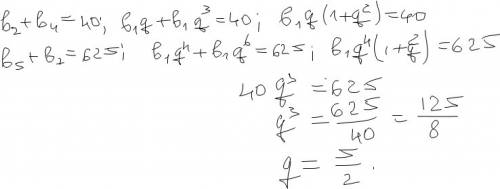 b₂ + b₄ = 40; b₁q + b₁q³ = 40; b₁q(1+q²) = 40
b₅ + b₂ = 625; b₁q⁴ + b₁q⁶ = 625; b₁q⁴(1+q²) = 625
40 q³ = 625
q³ = 625/40 = 125/8
q = 5/2.